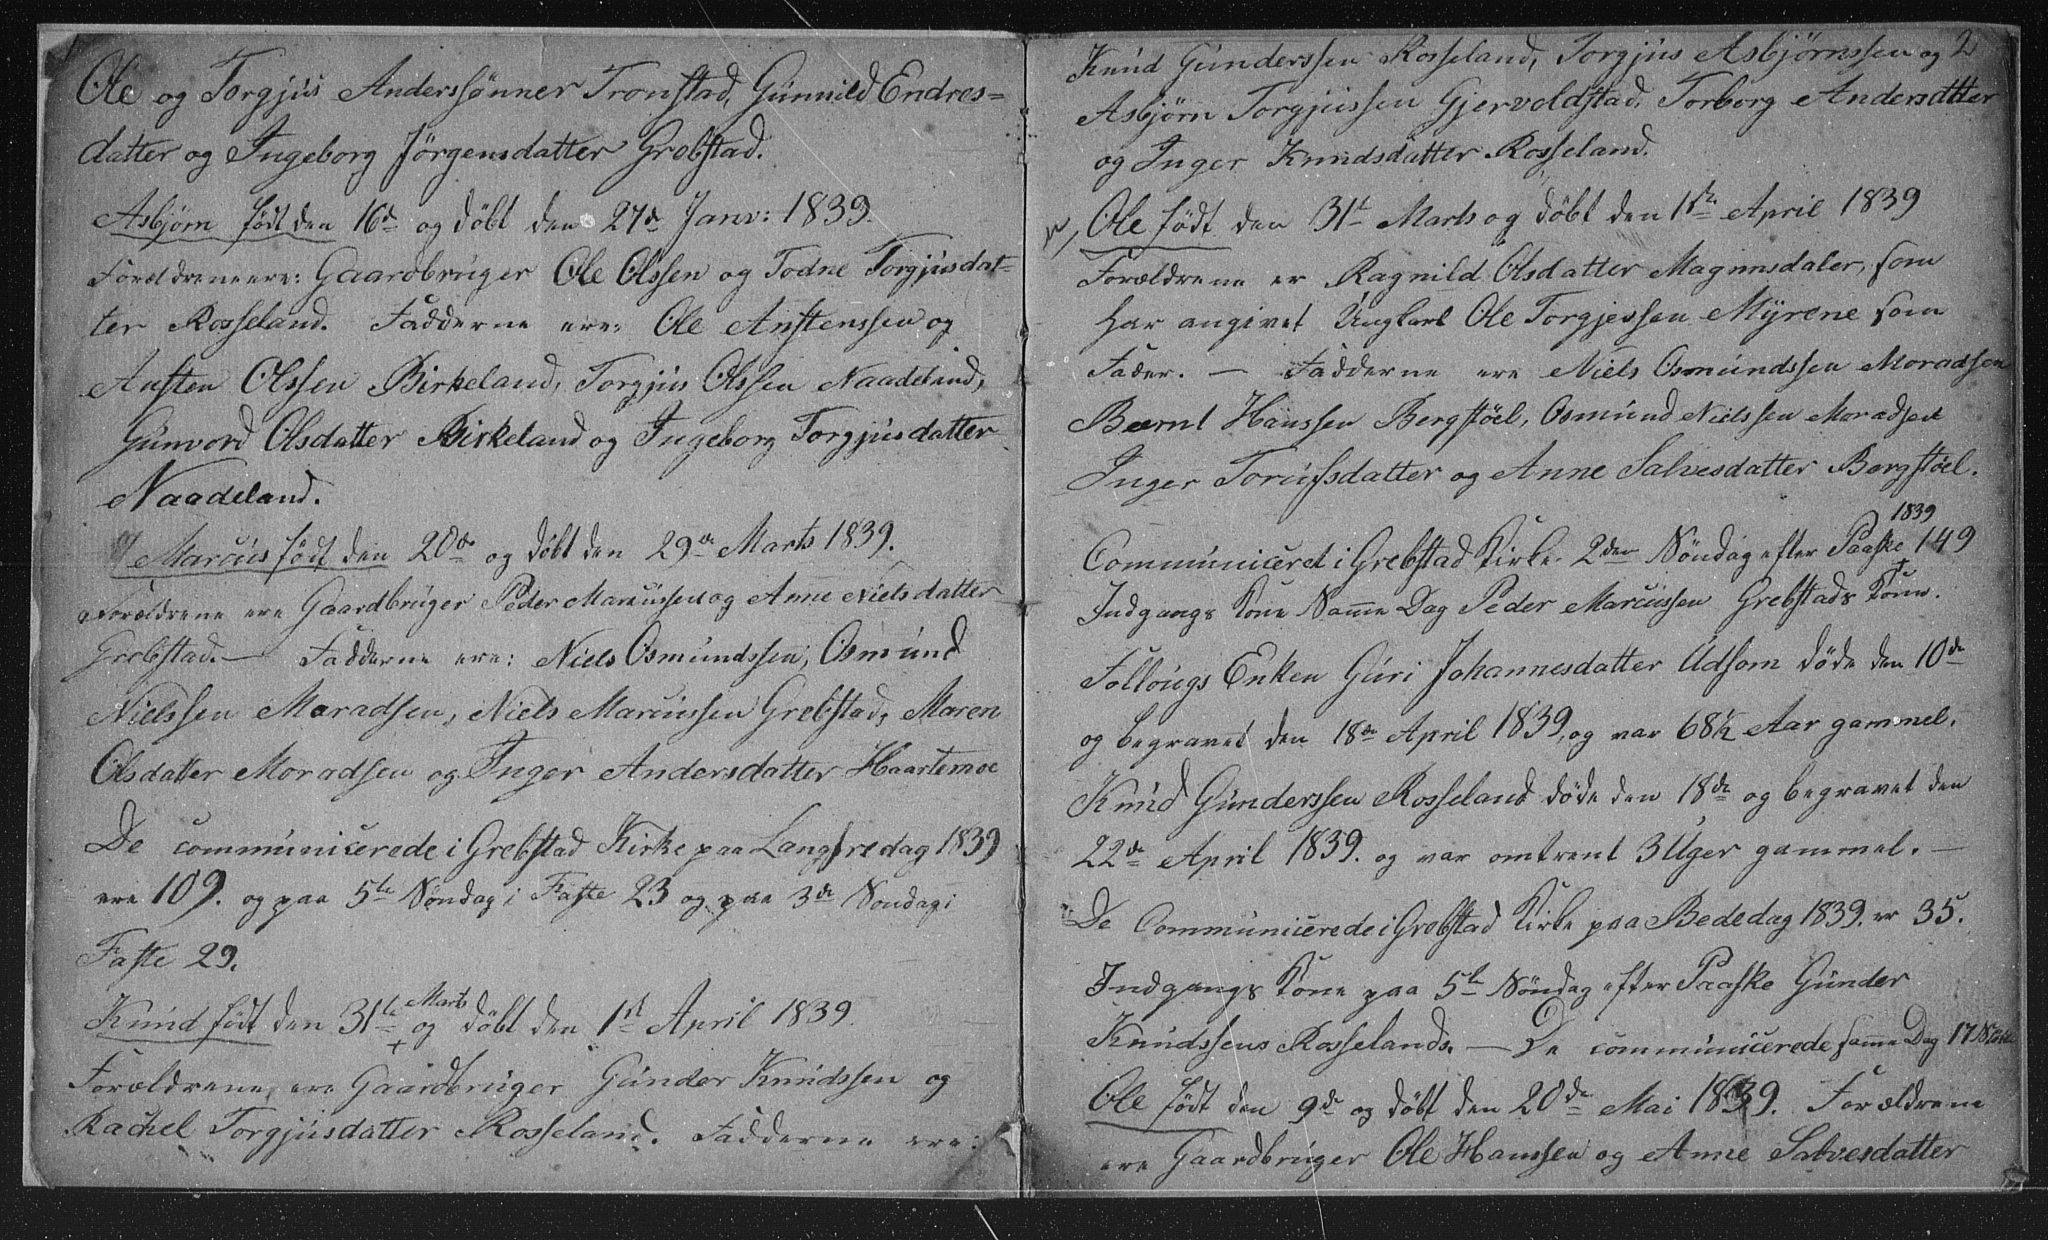 Ole og Torgjus Anderssønner Tronstad, Gunnild Endres=
datter og Ingeborg Jörgensdatter Grebstad.
Asbjørn født den 16de og döbt den 27de Janv: 1839.
Forældrene ere: Gaardbruger Ole Olssen og Todne Torgjusdat-
ter Rosseland. Fadderne ere: Ole Anstenssen og
Ansten Olssen Birkeland, Torgjus Olssen Naadeland,
Gunvord Olsdatter Birkeland og Ingeborg Torgjusdatter
Naadeland.
Marcus født den 20de og döbt den 29de Marts 1839.
Forældrene ere Gaardbruger Peder Marcussen og Anne Nielsdatter
Grebstad. — Fadderne ere: Niels Osmundssen, Osmund
Nielssen Moradsen, Niels Marcussen Grebstad, Maren
Olsdatter Moradsen og Inger Andersdatter Haartemoe
De communicerede i Grebstad Kirke paa Langfredag 1839
ere 109. og paa 5te Søndag i Faste 23 og paa 3de Søndag i
Faste 29.
Knud født den 31te Marts og döbt den 1ste April 1839
Forældrene ere Gaardbruger Gunder Knudssen og
Rachel Torgjusdatter Rosseland. Fadderne ere:
2
Knud Gunderssen Rosseland, Torgjus Asbjørnssen og
Asbjørn Torgjussen Gjervoldstad, Torborg Andersdatter
og Inger Knudsdatter Rosseland.
Ole født den 31te Marts og döbt den 1ste April 1839
Forældrene er Ragnild Olsdatter Magnusdaler, som
har angivet Ungkarl Ole Torgjessen Myrene som
Fader. — Fadderne ere Niels Osmundssen Moradsen
Bernt Hanssen Bergstöel, Osmund Nielssen Moradsen
Inger Torufsdatter og Anne Salvesdatter Bergstöel.
Communiceret i Grebstad Kirke 2den Søndag efter Paaske 1839 149
Indgangs Kone Samme Dag Peder Marcussen Grebstads Kone.
Follougs Enken Guri Johannesdatter Udsom døde den 10de
og begravet den 18de April 1839, og var 68½ Aar gammel.
Knud Gunderssen Rosseland døde den 18de og begravet den
22de April 1839. og var omtrent 3 Uger gammel. —
De Communicerede i Grebstad Kirke paa Bededag 1839. er 35.
Indgangs Kone paa 5te Søndag efter Paaske Gunder
Knudssens Rosselands. — De communicerede samme Dag 17
Ole født den 9de og döbt den 20de Mai 1839. Forældrene
ere Gaardbruger Ole Hanssen og Anne Salvesdatter